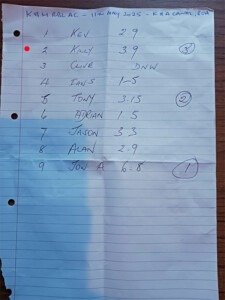 11TH MAY 2025 -
1 KEV 2 9
2 KILLY 3.9 3
3 CLIVE DNW
4 IAN S 1-5
5 TONY 3-15 2
6 ADRIAN 1.5
7 JASON 3 3
8 ALAN 2-9
9 JON A 6-8 1